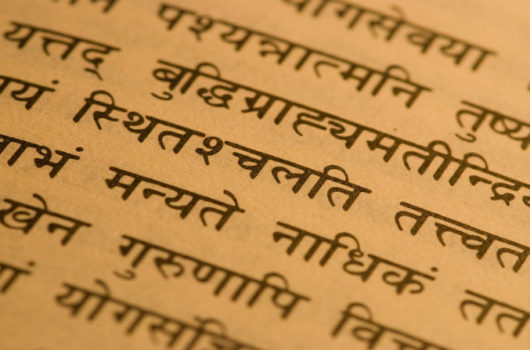 योगसेवया
न पश्यन्नात्मनि तुष्य
यत्तद् बुद्धिग्राह्यमतीन्द्रिय
यं स्थितश्चलति तत्त्वत
भं मन्यते नाधिकं तत
खेन गुरुणापि विच
योगसंज्ञि